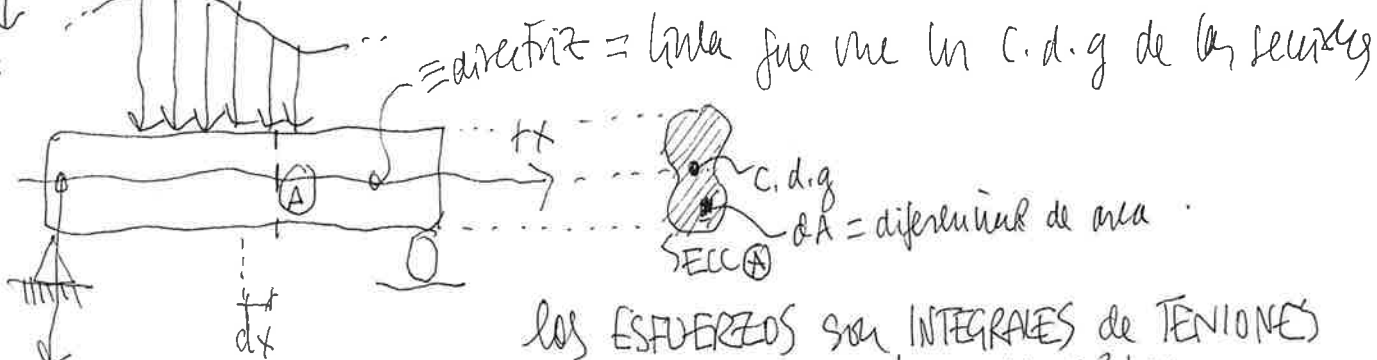 ≡directriz = línea que une los c.d.g de las secciones
+x
A
c.d.g
dA = diferencial de area
SECC A
dx
los ESFUERZOS son INTEGRALES de TENIONES